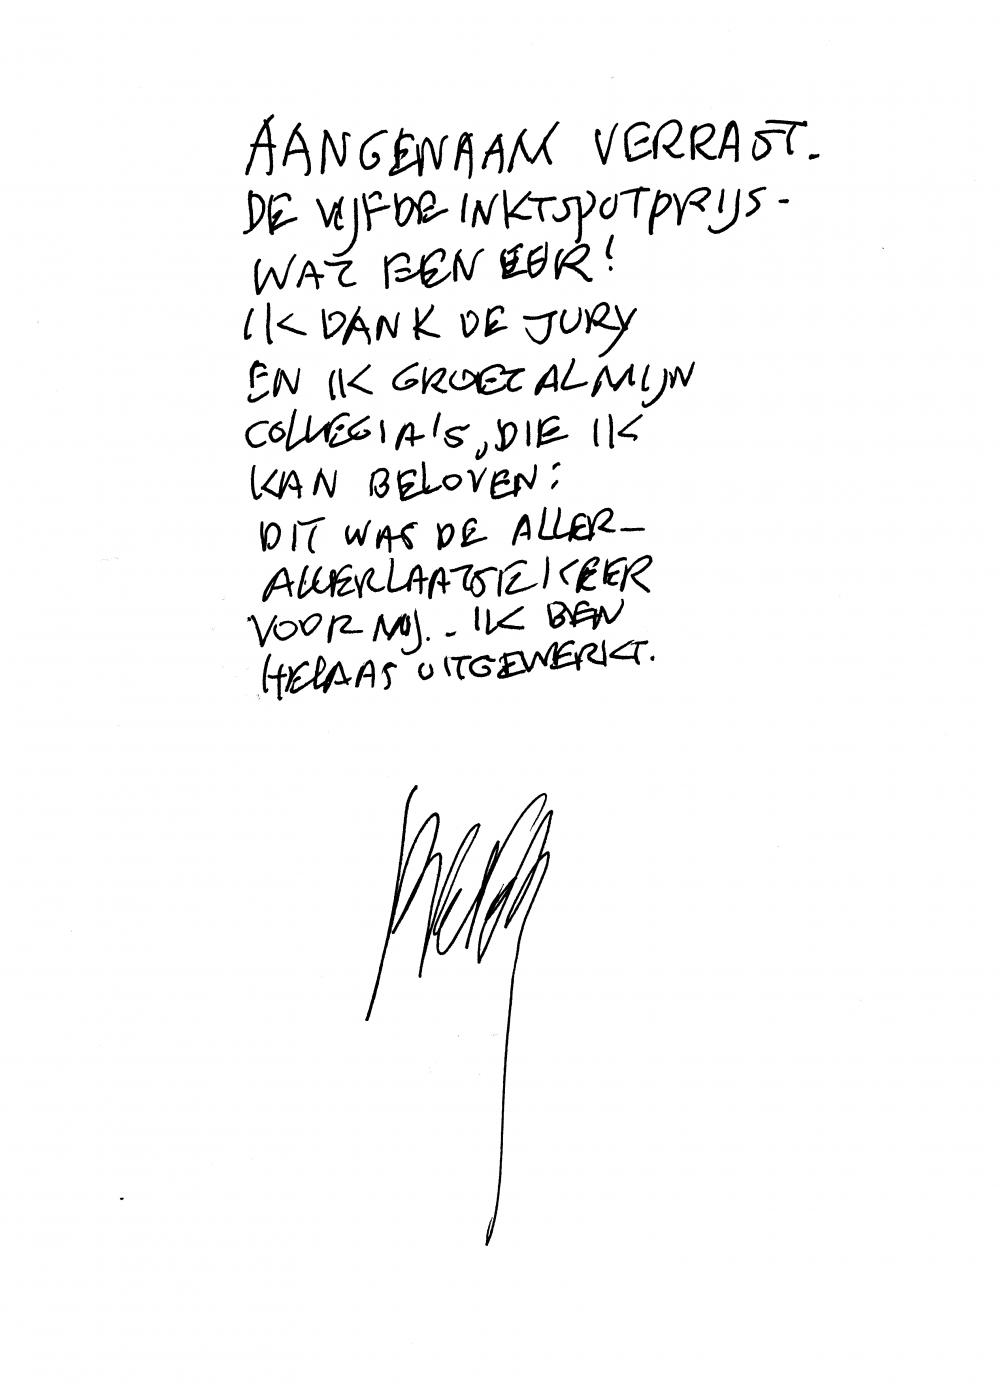 AANGENAAM VERRAST.
DE VIJFDE INKTSPOTPRIJS -
WAT EEN EER!
IK DANK DE JURY
EN IK GROET AL MIJN
COLLEGIA'S, DIE IK
KAN BELOVEN:
DIT WAS DE ALLER-
ALLERLAATSTE KEER
VOOR MIJ.. IK BEN
HELAAS UITGEWERKT.